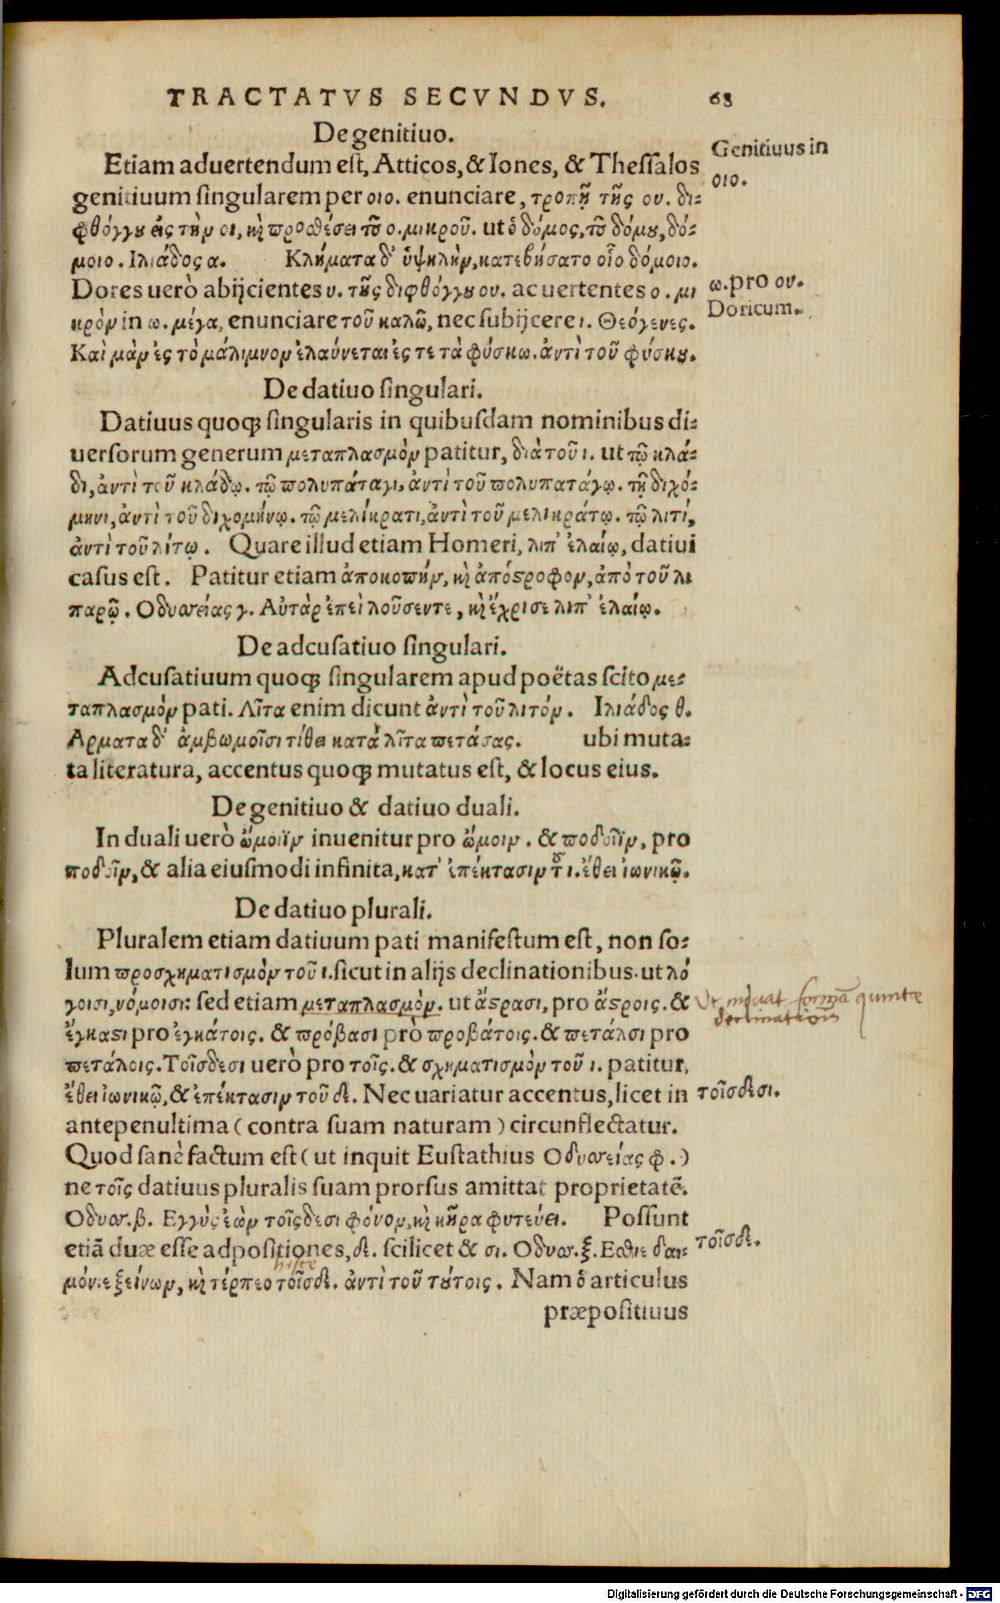 TRACTATVS SECVNDVS. 68
De genitiuo.
Etiam aduertendum est, Atticos, & Iones, & Thessalos
Genitiuus in
οιο.
genitiuum singularem per οιο. enunciare, τροπῇ τῆς ου. δι-
φθόγγου εἰς τὴν οι, καὶ προσθέσει τοῦ ο. μικροῦ. ut ὁ δόμος, τοῦ δόμου, δό-
μοιο. Ιλιάδος α. Κλήματα δ' ὑψηλὴν, κατεβήσατο οἷο δόμοιο.
Dores uerò abijcientes υ. τῆς διφθόγγου ου. ac uertentes ο. μι
ω. pro ου.
Doricum.
κρὸν in ω. μέγα, enunciare τοῦ καλῶ, nec subijcere ι. Θεόγενες.
Καὶ μὰν ἐς τὸ μάλιμνον ἐλαύνεται ἐς τε τὰ φύσκω. ἀντὶ τοῦ φύσκου.
De datiuo singulari.
Datiuus quoqꝫ singularis in quibusdam nominibus di-
uersorum generum μεταπλασμὸν patitur, διὰ τοῦ ι. ut τῷ κλά-
δι, ἀντὶ τοῦ κλάδῳ. τῷ πολυπάταγι, ἀντὶ τοῦ πολυπατάγῳ. τῇ διχό-
μηνι, ἀντὶ τοῦ διχομήνῳ. τῷ μελίκρατι, ἀντὶ τοῦ μελικράτῳ. τῷ λιτί,
ἀντὶ τοῦ λίτῳ. Quare illud etiam Homeri, λιπ' ἐλαίῳ, datiui
casus est. Patitur etiam ἀποκοπήν, καὶ ἀπόστροφον, ἀπὸ τοῦ λι
παρῷ. Οδυσσείας γ. Αὐτὰρ ἐπεὶ λοῦσεν τε, καὶ ἔχρισε λιπ' ἐλαίῳ.
De adcusatiuo singulari.
Adcusatiuum quoqꝫ singularem apud poëtas scito με-
ταπλασμὸν pati. Λῖτα enim dicunt ἀντὶ τοῦ λιτόν. Ιλιάδος θ.
Αρματα δ' ἀμβωμοῖσι τίθει κατὰ λῖτα πετάσας. ubi muta-
ta literatura, accentus quoqꝫ mutatus est, & locus eius.
De genitiuo & datiuo duali.
In duali uerò ὤμοιϊν inuenitur pro ὤμοιν. & ποδοῖϊν, pro
ποδοῖν, & alia eiusmodi infinita, κατ' ἐπέκτασιν τοῦ ι. ἔθει ἰωνικῷ.
De datiuo plurali.
Pluralem etiam datiuum pati manifestum est, non so-
lum προσχηματισμὸν τοῦ ι. sicut in alijs declinationibus. ut λό
γοισι, νόμοισι: sed etiam μεταπλασμὸν. ut ἄστρασι, pro ἄστροις. &
Vt induat formā quintæ
declinationis
ἔγκασι pro ἐγκάτοις. & πρόβασι prò προβάτοις. & πετάλσι pro
πετάλοις. Τοῖσδεσι uerò pro τοῖς. & σχηματισμὸν τοῦ ι. patitur,
ἔθει ἰωνικῷ, & ἐπέκτασιν τοῦ δε. Nec uariatur accentus, licet in
τοῖσδεσι.
antepenultima (contra suam naturam) circunflectatur.
Quod sanè factum est (ut inquit Eustathius Οδυσσείας φ.)
ne τοῖς datiuus pluralis suam prorsus amittat proprietatē.
Οδυσσ. β. Εγγὺς ἐὼν τοῖςδεσι φόνον, καὶ κῆρα φυτεύει. Possunt
etiā duæ esse adpositiones, δε. scilicet & σι. Οδυσσ. ξ. Εσθιε δαι-
τοῖσδε.
hisce
μόνιε ξείνων, καὶ τέρπεο τοῖσδε. ἀντὶ τοῦ τούτοις. Nam ὁ articulus
præpositiuus
Digitalisierung gefördert durch die Deutsche Forschungsgemeinschaft - DFG